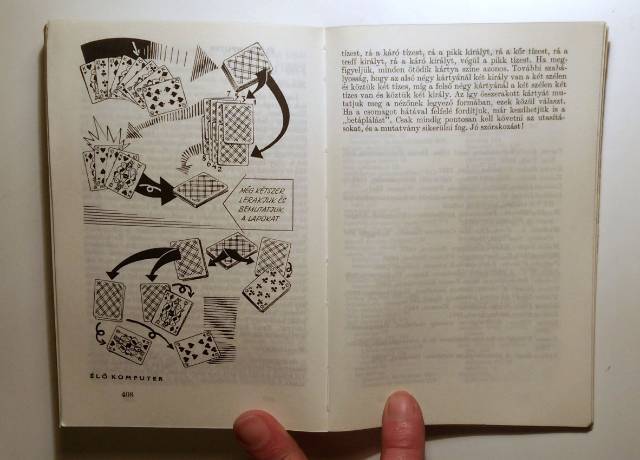 MÉG KÉTSZER
LERAKJUK ÉS
BEMUTATJUK
A LAPOKAT
ÉLŐ KOMPUTER
408
tízest, rá a káró tízest, rá a pikk királyt, rá a kőr tízest, rá a
treff királyt, rá a káró királyt, végül a pikk tízest. Ha meg-
figyeljük, minden ötödik kártya színe azonos. További szabá-
lyosság, hogy az alsó négy kártyánál két király van a két szélen
és köztük két tízes, míg a felső négy kártyánál a két szélen két
tízes van és köztük két király. Az így összerakott kártyát mu-
tatjuk meg a nézőnek legyező formában, ezek közül választ.
Ha a csomagot hátával felfelé fordítjuk, már kezdhetjük is a
„betáplálást”. Csak mindig pontosan kell követni az utasítá-
sokat, és a mutatvány sikerülni fog. Jó szórakozást!